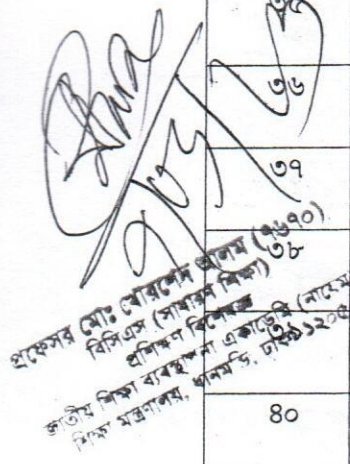 ৩৬
৩৭
৩৮
৪০
প্রফেসর মোঃ খোরশেদ আলম (৭৬৭০)
বিসিএস (সাধারণ শিক্ষা)
প্রশিক্ষণ বিশেষজ্ঞ
জাতীয় শিক্ষা ব্যবস্থাপনা একাডেমি (নায়েম)
শিক্ষা মন্ত্রণালয়, ধানমন্ডি, ঢাকা-১২০৫